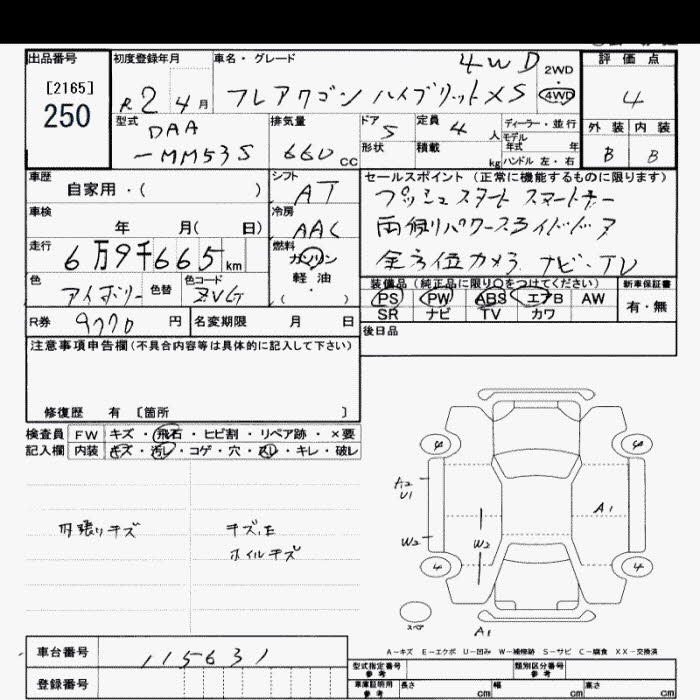 出品番号 初度登録年月 車名・グレード 4WD 評価点
[2165]
250
R2 4月 フレアワゴン ハイブリットXS 2WD 4WD 4
型式 排気量 ドア 定員 ディーラー・並行 外装 内装
DAA 5 4人 モデル年式 年
-MM53S 660cc 形状 積載 kg ハンドル 左・右 B B
車歴 シフト セールスポイント（正常に機能するものに限ります）
自家用・（ ） AT プッシュスタート スマートキー
車検 冷房 両側パワースライドドア
年 月（ 日） AAC
走行 燃料 全方位カメラ ナビ・TV
6万9千665km ガソリン
色 色替 色コード 軽油 装備品（純正品に限り○をつけてください） 新車保証書
アイボリー ZVG （・） PS PW ABS エアB AW 有・無
R券 9770円 名変期限 月 日 SR ナビ TV カワ
注意事項申告欄（不具合内容等は具体的に記入して下さい） 後日品
修復歴 有 〔箇所 〕
検査員 FW キズ・飛石・ヒビ割・リペア跡・×要
記入欄 内装 キズ・汚レ・コゲ・穴・スレ・キレ・破レ
4 4
A2
U1
A1
内張りキズ キズ,E
ホイルキズ
W2 W2
4 4
スペア
A1
A-キズ E-エクボ U-凹み W-補修跡 S-サビ C-腐食 XX-交換済
車台番号 115631
型式指定番号 参考 類別区分番号 参考
登録番号 車庫証明用 参考 長さ cm 幅 cm 高さ cm